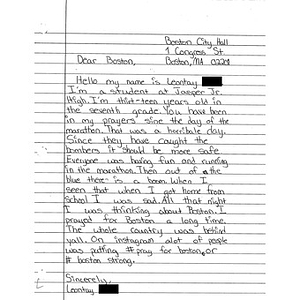 Boston City Hall
1 Congress St.
Dear Boston, Boston, MA 02201
Hello my name is Leontay
I'm a student at Jasper Jr.
High. I'm thirt-teen years old in
the seventh grade. You have been
in my prayers sinc the day of the
marathon. That was a horrible day.
Since they have caught the
bombers it should be more safe.
Everyone was having fun and running
in the marathon. Then out of the
blue there is a boom. When I
seen that when I got home from
school I was sad. All that night
I was thinking about Boston. I
prayed for Boston a long time.
The whole country was behind
yall. On instagram alot of people
was putting #pray for boston, or
# boston strong.
Sincerely,
Leontay